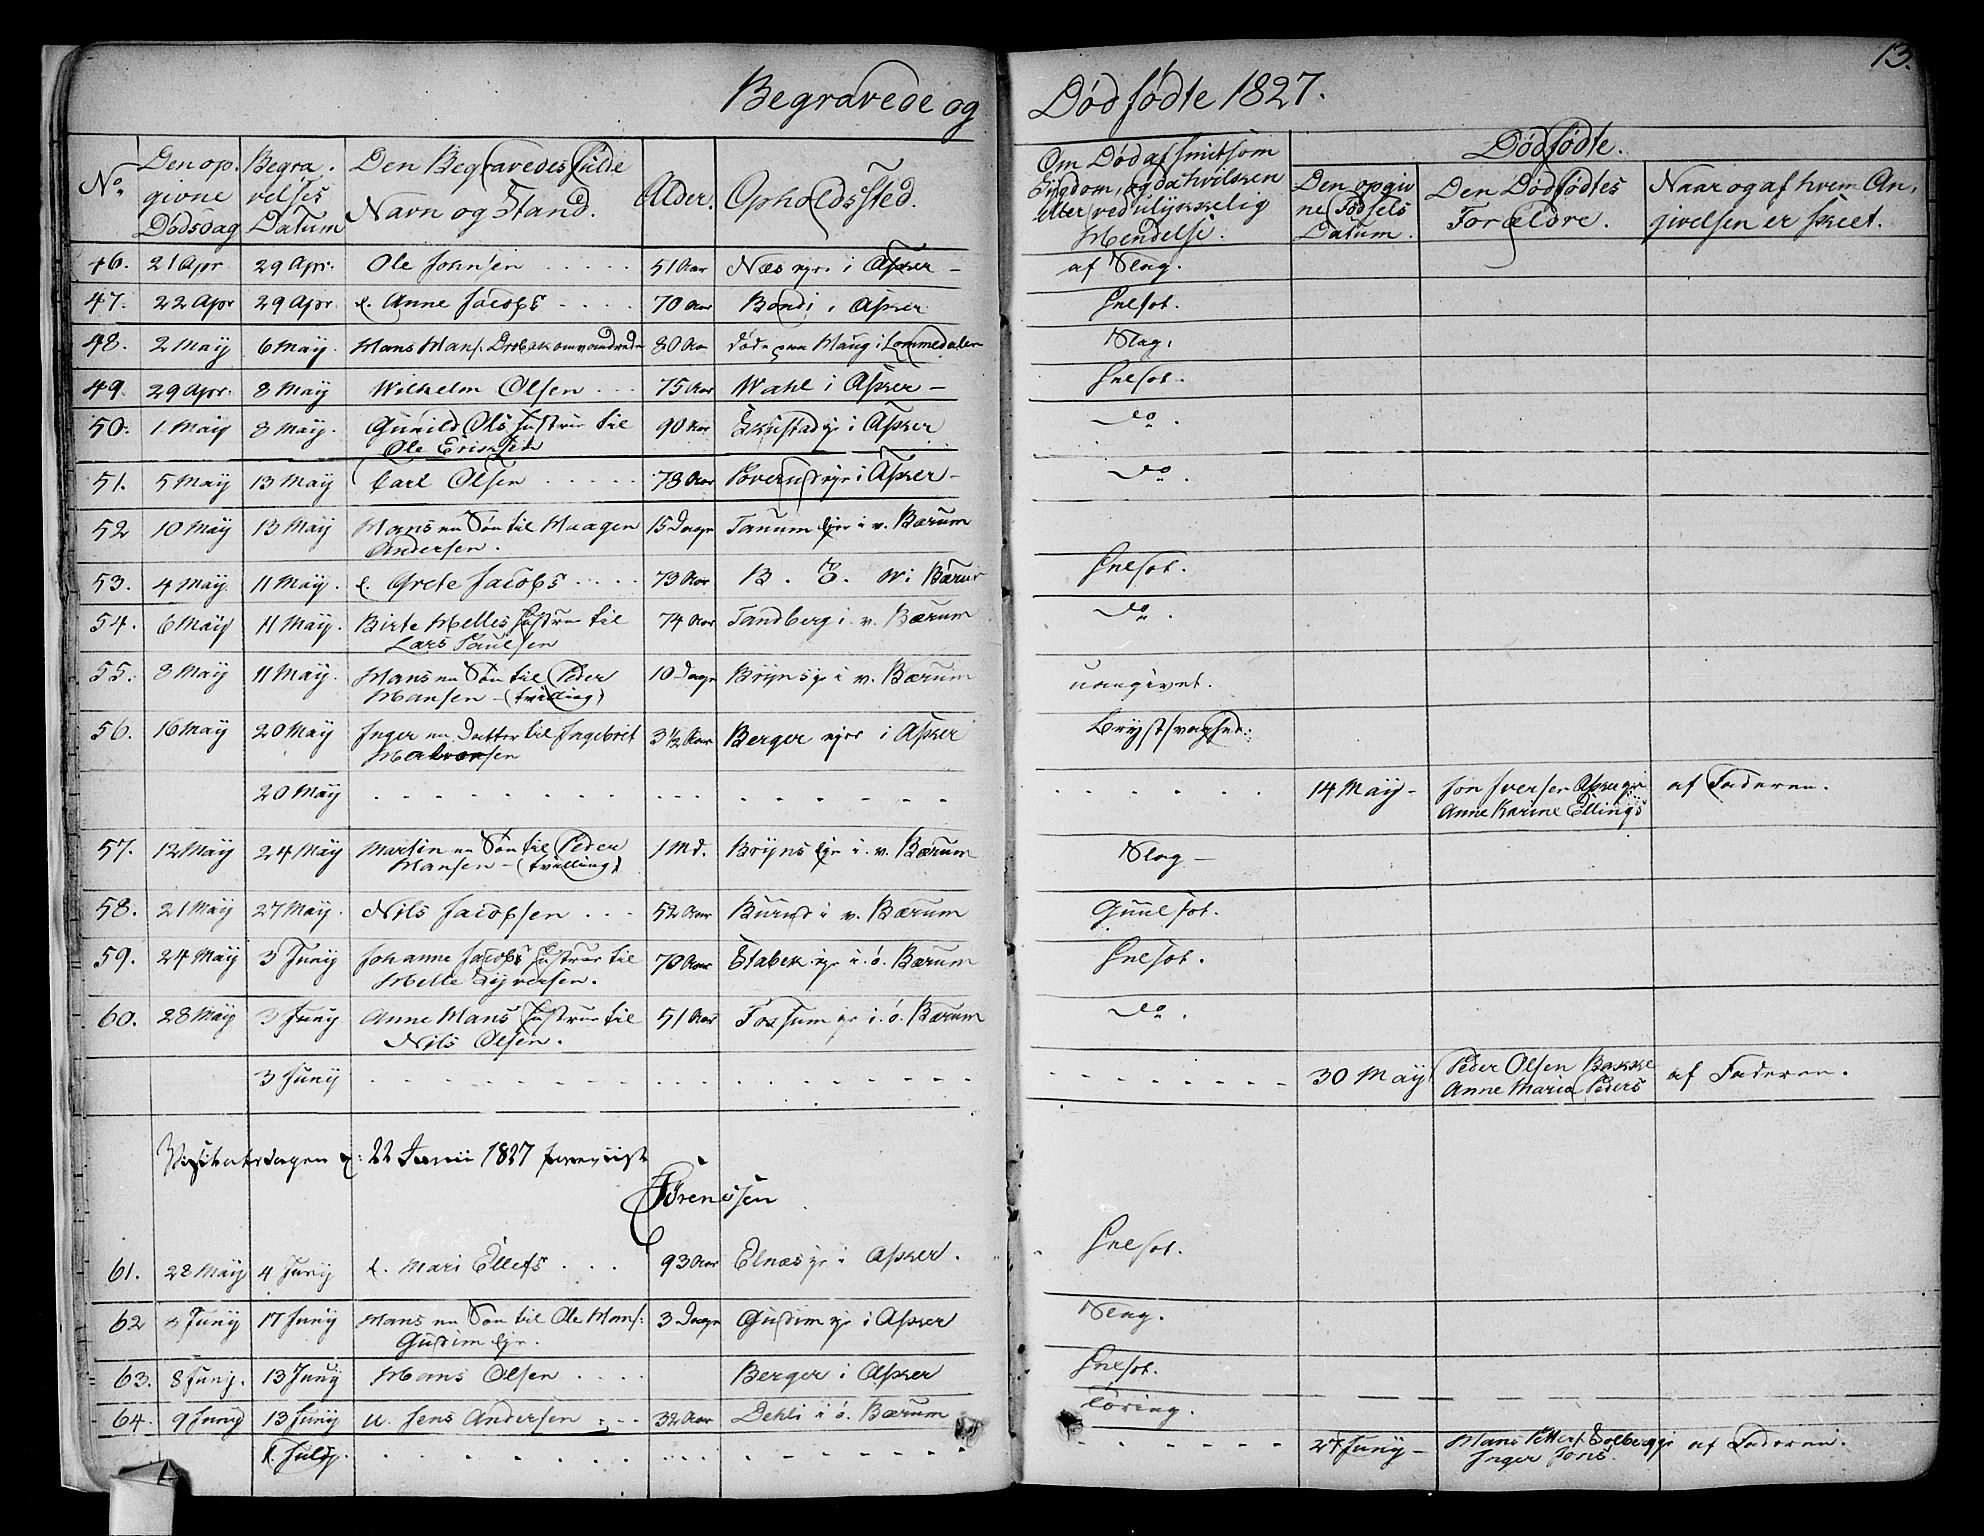 13.
Begravede og Dødfødte 1827.
No. Den opgivne Dødsdag Begravelses Datum Den Begravedes fulde Navn og Stand. Alder. OpholdsSted. Om Død af smitsom Sygdom, og da hvilken eller ved ulykkelig Hændelse. Dødfødte.
Den opgivne Fødsels Datum. Den Dødfødtes Forældre. Naar og af hvem Angivelsen er skeet.
46. 21 Apr 29 Apr. Ole Johnsen 51 Aar Næs i Asker af Slag.
47. 22 Apr 29 Apr. E. Anne Jacobs 70 Aar Bondi i Asker Inesot.
48. 2 Maij 6 Maij. Hans Hans. Drobak omvandrede 80 Aar døde paa Haug i Lommedalen Slag.
49. 29 Apr. 8 Maij Wilhelm Olsen 75 Aar Wahl i Asker Inesot.
50. 1 Maij 8 Maij. Gunild Ols Hustrue til 90 Aar i Asker do.
Ole Eriksen
51. 5 Maij 13 Maij Carl Olsen 78 Aar i Asker do.
52 10 Maij 13 Maij Hans en Søn til Haagen 15 Dage Tanum Eje i v. Bærum
Andersen.
53. 4 Maij 11 Maij. E. Grete Jacobs 73 Aar B. i Bærum Inesot.
54. 6 Maij 11 Maij. Birte Helles Hustrue til 74 Aar Tandberg i v. Bærum do.
Lars Paulsen
55. 8 Maij 11 Maij. Hans en Søn til Peder 10 Dage Bryns ej i v. Bærum uangivet.
Hansen - (tvilling)
56. 16 Maij 20 Maij Inger en Datter til Ingebret 3 1/2 Aar Berger ejer i Asker Brystsvaghed.
Halvorsen
20 Maij 14 Maij Jon Iversen Asker ejer af Faderen.
Anne Karine Ellings
57. 12 Maij 24 Maij Martin en Søn til Peder 1 Md. Bryns Eje i v. Bærum Slag
Hansen - (tvilling)
58. 21 Maij 27 Maij. Nils Jacobsen 52 Aar Burud i v. Bærum Guulsot.
59. 24 Maij 3 Junij Johanne Jacobs Hustrue til 70 Aar Stabek eje i ø. Bærum Inesot.
Helle Syversen.
60. 28 Maij 3 Junij Anne Hans Hustrue til 51 Aar Fossum eje i ø. Bærum do.
Nils Olsen.
3 Junij 30 Maij Peder Olsen Bakke af Faderen.
Anne Maria Peders
Visitatsdagen d: 22 Junii 1827 foreviist
Sørenssen
61. 28 Maij 4 Junij E. Mari Ellefs 93 Aar Elnæs eje i Asker. Inesot.
62 Junij 17 Junij Hans en Søn til Ole Hans: 3 Dage Gudim eje i Asker Slag.
Gudim Eje.
63. 8 Junij. 13 Junij Hans Olsen Berger i Asker Inesot.
64. 9 Junij 13 Junij U. Jens Andersen 32 Aar Dehli i ø. Bærum Tæring.
1. Julij. 27 Junij Hans Petters. Solberg eje af Faderen.
Inger Jons.